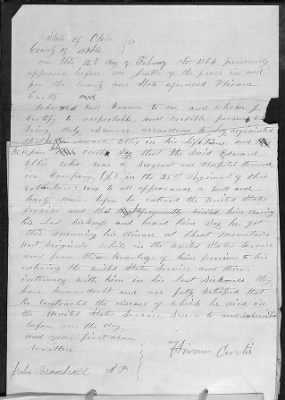 State of Ohio } ss
County of Noble
on this 12th day of Febuary AD 1864 personaly
appeared before me Justice of the peace in and
for the County and State aforesaid Hiram
Curtis and
who is well known to me and whom I
certify to respectable and credible persons
being duly sworn according to law
Edward Ellis in his lifetime and
says that the said Edward
Ellis who was a Sergeant and
in Company (K) in the 25th Regiment of Ohio
Volunteers was to all appearance a well and
hearty man before he entered the United States
Service and that frequently visited him during
his last sickness and heard him say he got
his disease at Cheat Mountain
West Virginia while in the United States Service
and from there knowledge of him previous to his
entering the United States Service and there
intimacy with him in his last sickness they
have know doubt and are fully satisfied that
he contracted the disease of which he died in
the United States Service Sworn to and subscribed
before me the day
and year first above
written
Hiram Curtis
John
J P